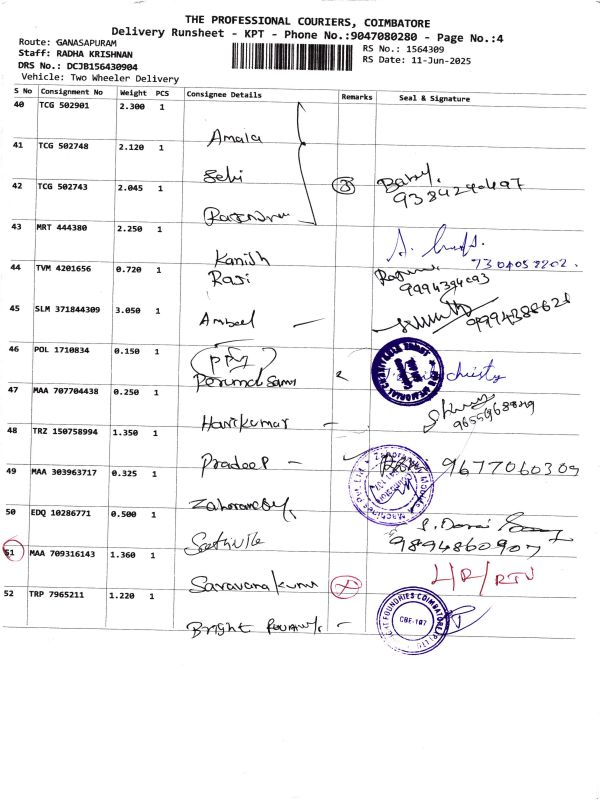 THE PROFESSIONAL COURIERS, COIMBATORE
Delivery Runsheet - KPT - Phone No.:9047080280 - Page No.:4
Route: GANASAPURAM
RS No.: 1564309
Staff: RADHA KRISHNAN
RS Date: 11-Jun-2025
DRS No.: DCJB156430904
Vehicle: Two Wheeler Delivery
S No Consignment No Weight PCS Consignee Details Remarks Seal & Signature
40 TCG 502901 2.300 1
Amala
41 TCG 502748 2.120 1
Selvi
42 TCG 502743 2.045 1
3 Baby.
9384240497
Rajendran
43 MRT 444380 2.250 1
Kanish
7304058202.
44 TVM 4201656 0.720 1
Raji
9994394093
45 SLM 371844309 3.050 1
Ambeel –
9994388628
46 POL 1710834 0.150 1
PPG
Perumal Samy
Christy
47 MAA 707704438 0.250 1
Harikumar –
9655968849
48 TRZ 150758994 1.350 1
Pradeep –
9677060309
49 MAA 303963717 0.325 1
50 EDQ 10286771 0.500 1
S. Dorai
9894860907
Sathivle
51 MAA 709316143 1.360 1
L/R/RTN
Saravanakumar
52 TRP 7965211 1.220 1
FOUNDRIES COIMBATORE
CBE-107
Bright –